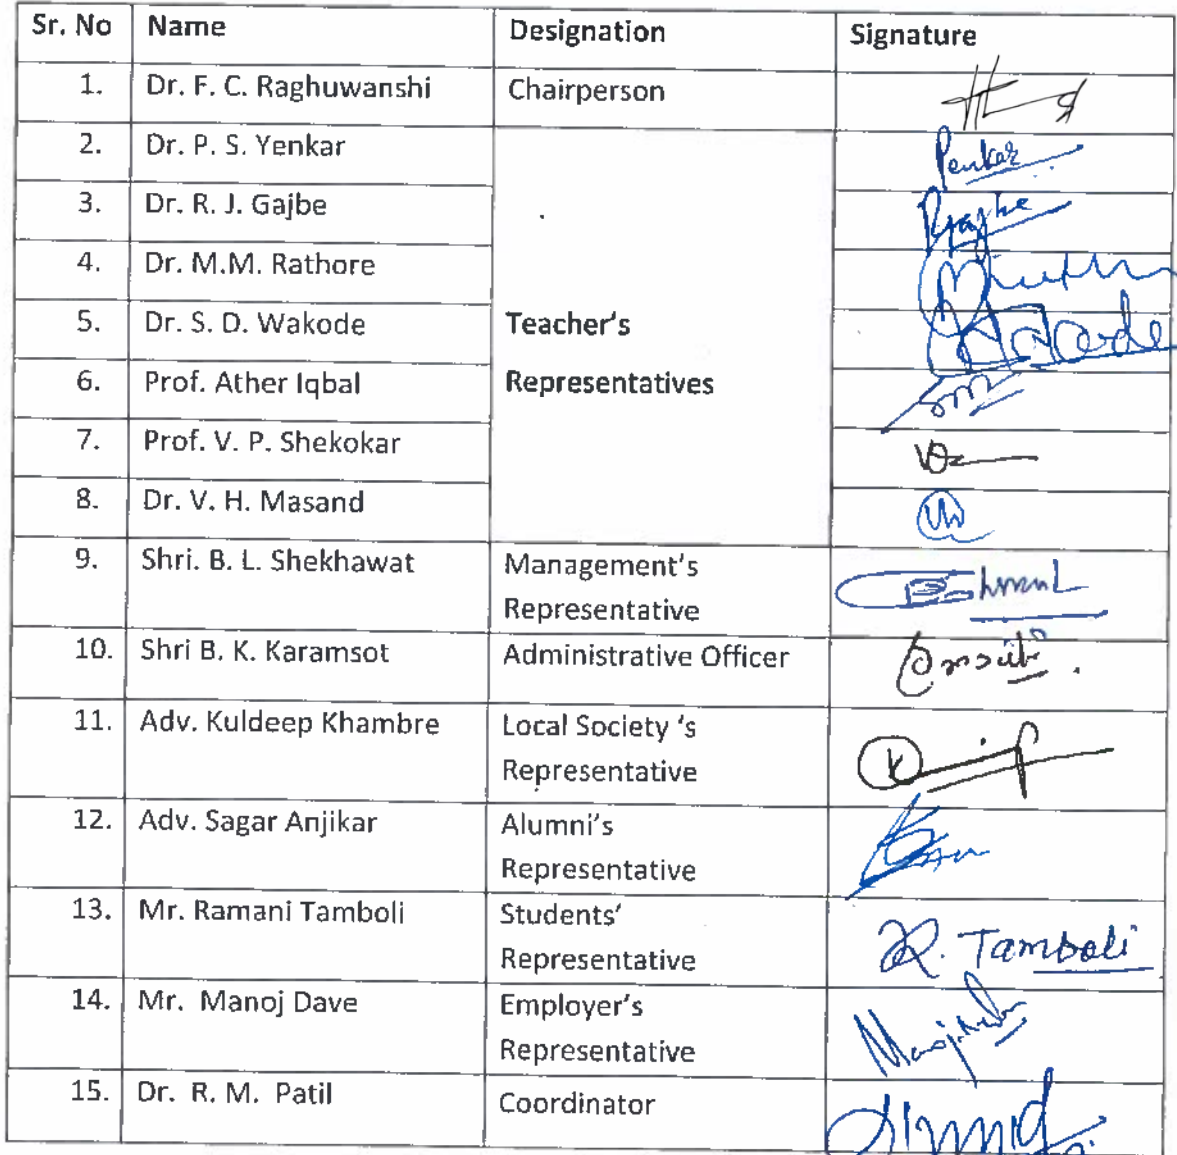 Sr. No Name Designation Signature
1. Dr. F. C. Raghuwanshi Chairperson
2. Dr. P. S. Yenkar Penkar
3. Dr. R. J. Gajbe
4. Dr. M.M. Rathore
5. Dr. S. D. Wakode Teacher's
6. Prof. Ather Iqbal Representatives
7. Prof. V. P. Shekokar
8. Dr. V. H. Masand
9. Shri. B. L. Shekhawat Management's
Representative
10. Shri B. K. Karamsot Administrative Officer
11. Adv. Kuldeep Khambre Local Society 's
Representative
12. Adv. Sagar Anjikar Alumni's
Representative
13. Mr. Ramani Tamboli Students'
Representative R. Tamboli
14. Mr. Manoj Dave Employer's
Representative
15. Dr. R. M. Patil Coordinator